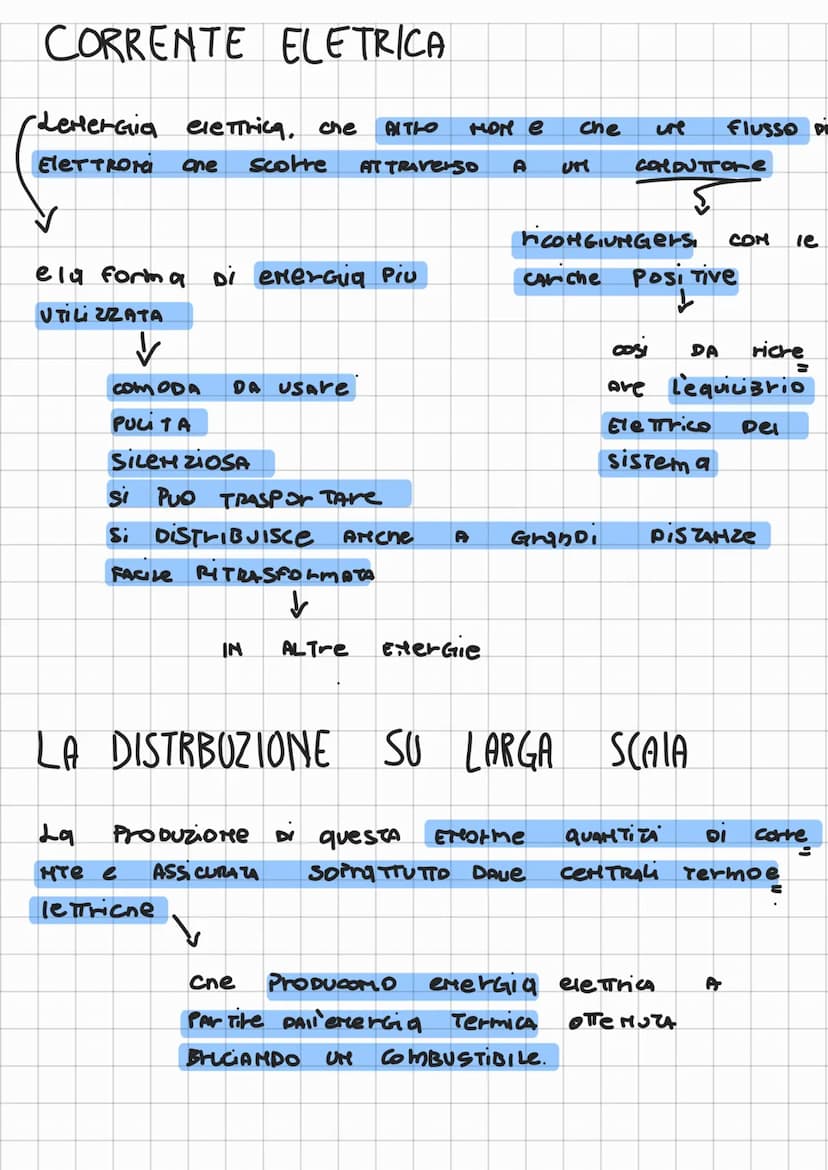 CORRENTE ELETRICA
L'energia elettrica, che altro non e che un flusso di
elettroni che scorre attraverso a un conduttore
ricongiungersi con le
cariche positive
e la forma di energia piu
utilizzata
cosi da ricre
are l'equilibrio
elettrico del
sistema
comoda da usare
pulita
silenziosa
si puo trasportare
si distribuisce anche a grandi distanze
facile ritrasformata
in altre energie
LA DISTRBUZIONE SU LARGA SCALA
La produzione di questa enorme quantità di corre
nte e assicurata soprattutto dalle centrali termoe
lettriche
che producono energia elettrica a
partire dall'energia termica ottenuta
bruciando un combustibile.